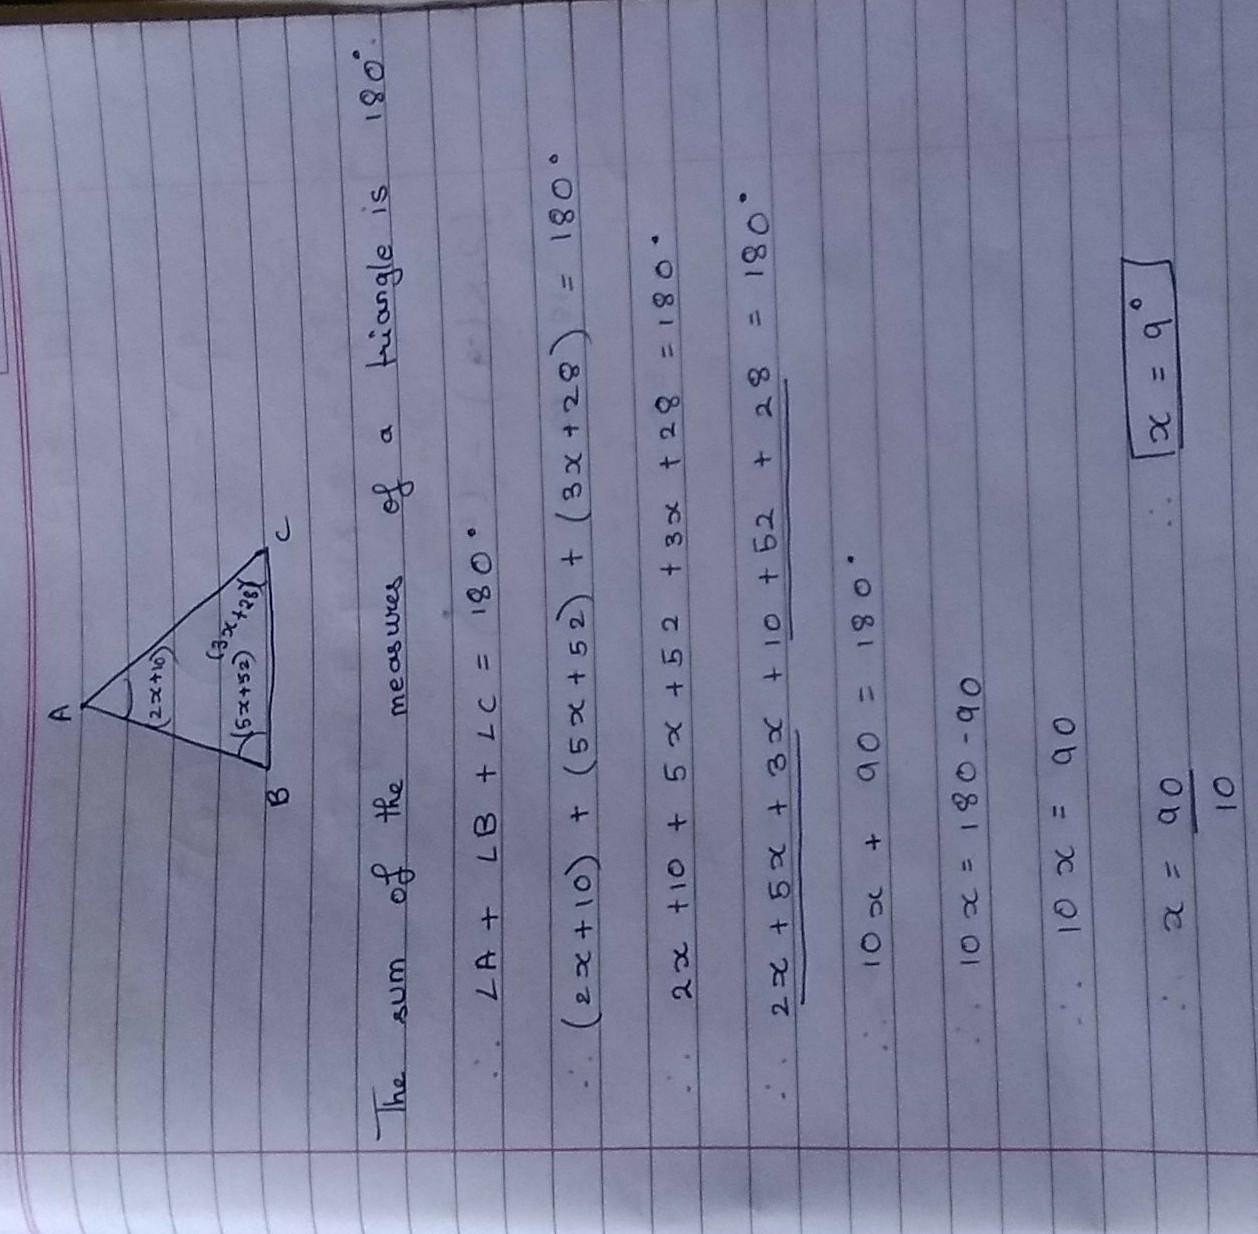 A
(2x+10)
(5x+52) (3x+28)
B C
The sum of the measures of a triangle is 180°.
∴ ∠A + ∠B + ∠C = 180°
∴ (2x+10) + (5x+52) + (3x+28) = 180°
∴ 2x +10 + 5x +52 +3x +28 =180°
∴ 2x +5x + 3x +10 +52 + 28 = 180°
∴ 10x + 90 = 180°
∴ 10x = 180-90
∴ 10x = 90
∴ x = 90/10 ∴ x = 9°